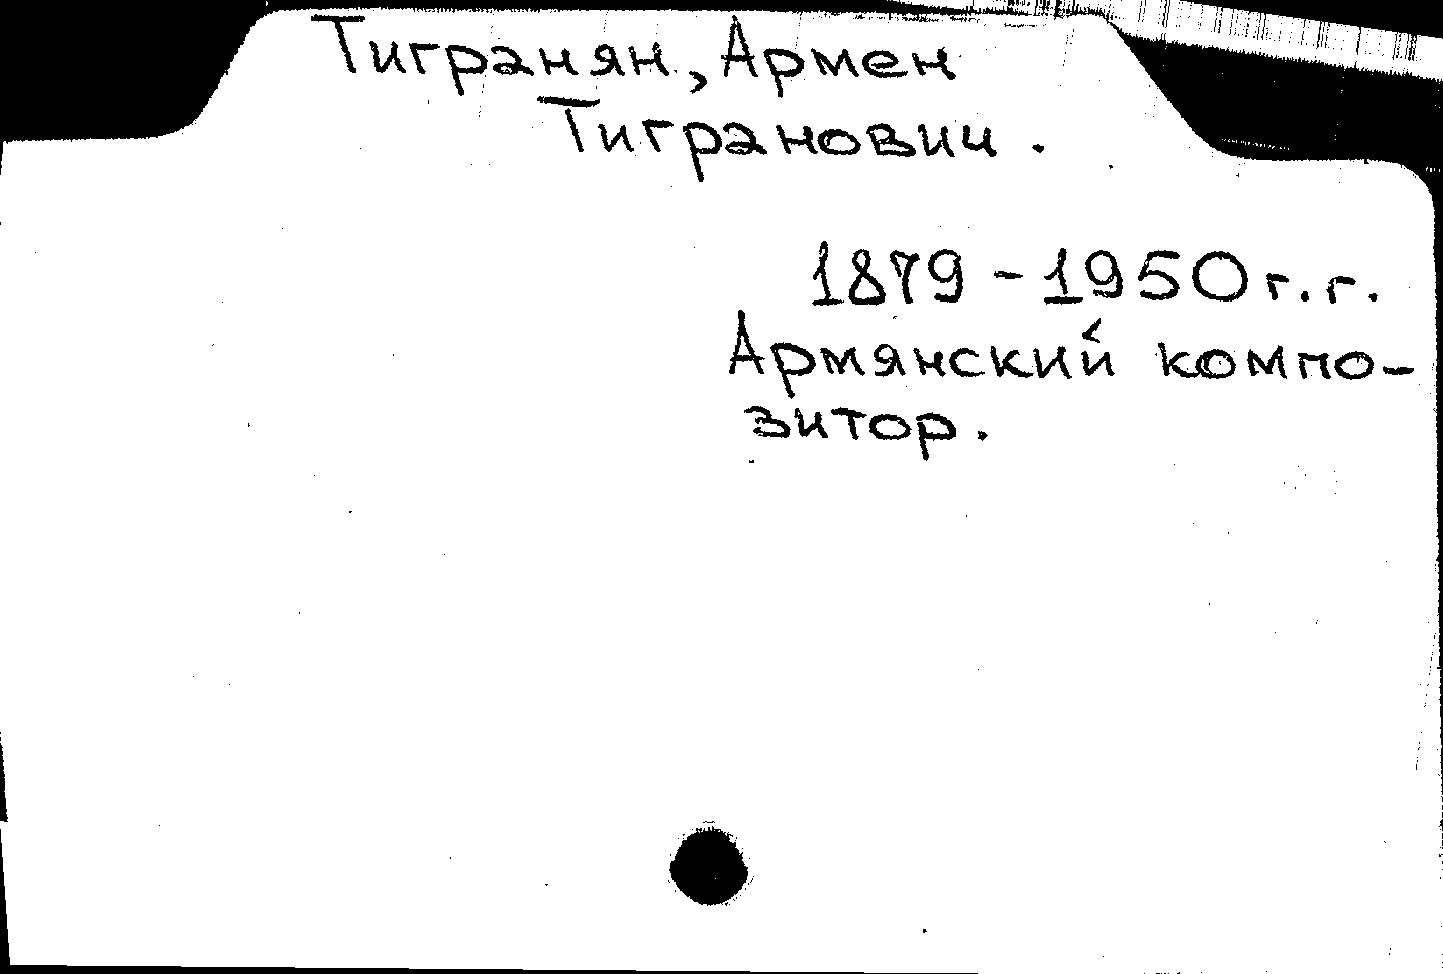 Тигранян, Армен
Тигранович.
1879 - 1950 г.г.
Армянский компо-
зитор.